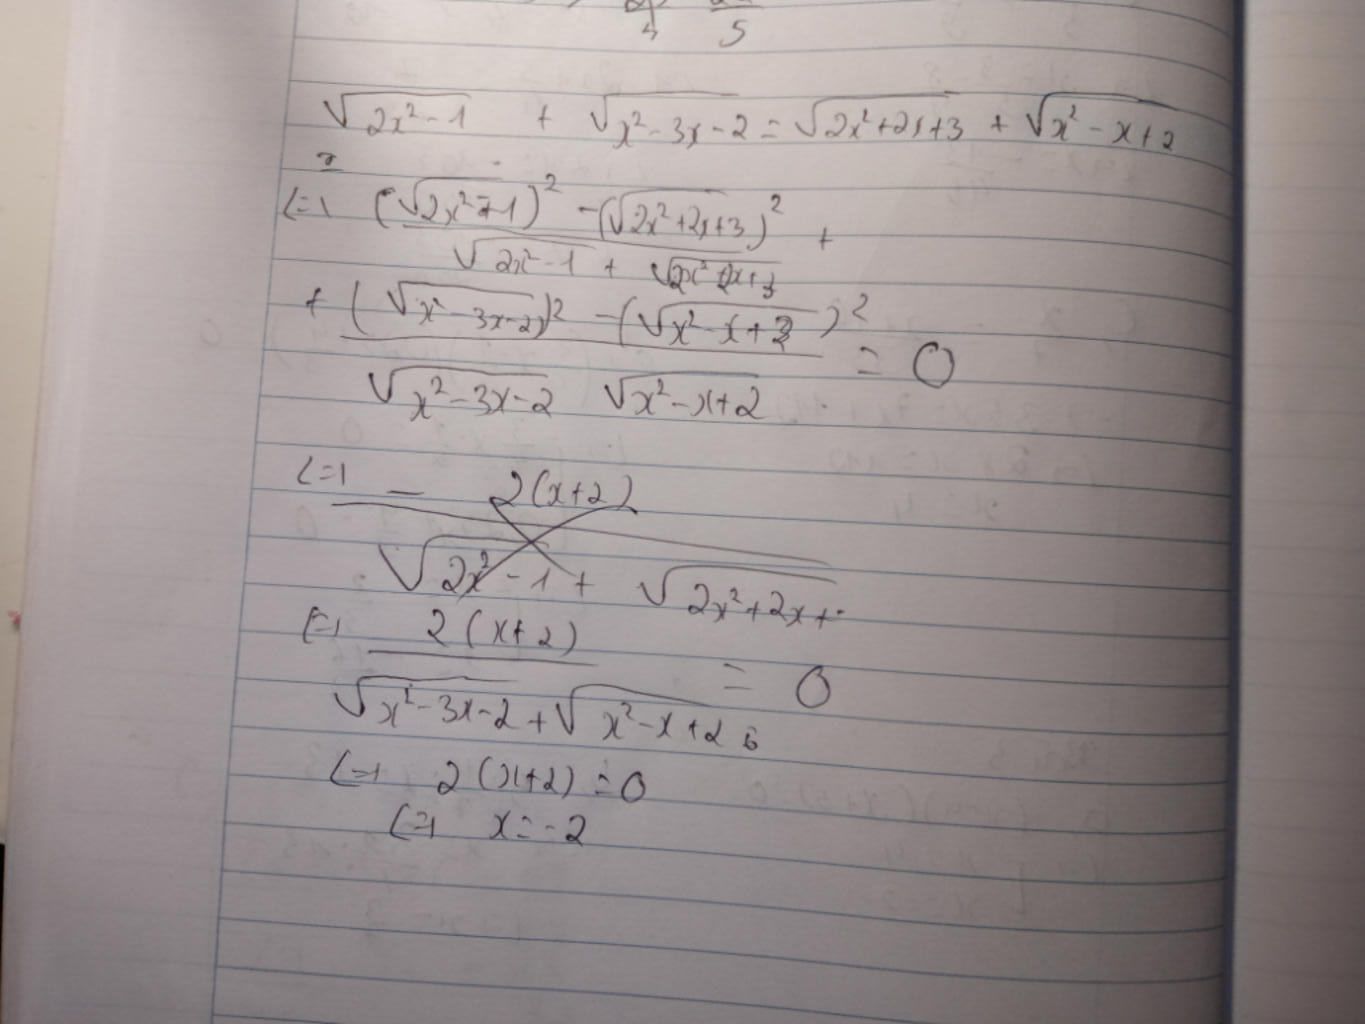 5
√(2x² - 1) + √(x² - 3x - 2) = √(2x² + 2x + 3) + √(x² - x + 2)
<=> (√(2x² - 1))² - (√(2x² + 2x + 3))² +
√(2x² - 1) + √(2x² + 2x + 3)
+ (√(x² - 3x - 2))² - (√(x² - x + 2))² = 0
√(x² - 3x - 2) √(x² - x + 2)
<=> - 2(x + 2)
√(2x² - 1) + √(2x² + 2x +
<=> 2(x + 2) = 0
√(x² - 3x - 2) + √(x² - x + 2)
<=> 2(x + 2) = 0
<=> x = -2